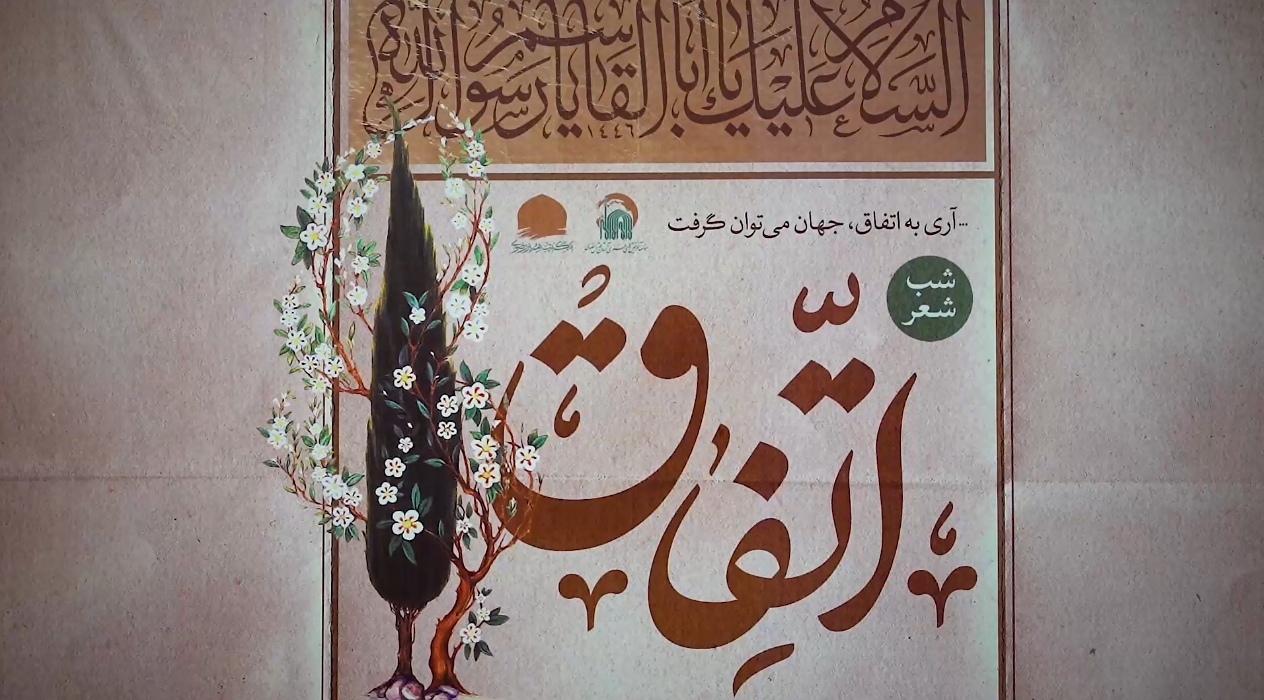 السلام علیك یا أبا القاسم یا رسول الله
١٤٤٦
...آری به اتفاق، جهان می‌توان گرفت
شب
شعر
اتّفاق